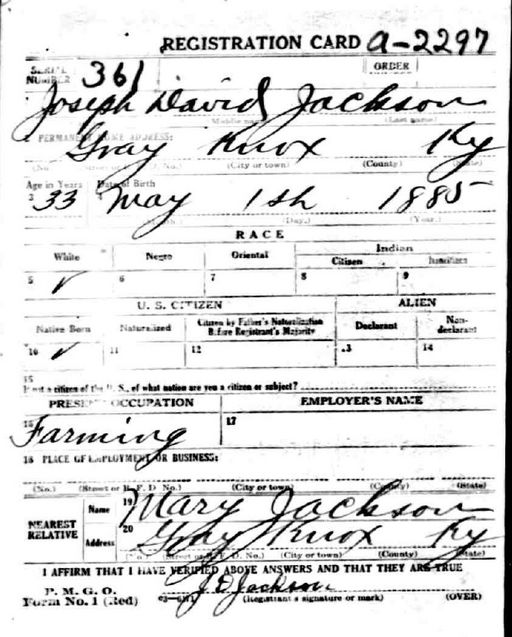 REGISTRATION CARD A-2297
SERIAL NUMBER 361 ORDER
Joseph David Jackson
Middle name (Last name)
PERMANENT HOME ADDRESS:
Gray Knox Ky
(No. (City or town) (County) (State)
Age in Years Date of Birth
3 33 4 May 1st 1885
(Day.) (Year.)
RACE
White Negro Oriental Indian
Citizen
5 ✓ 6 7 8 9
U. S. CITIZEN ALIEN
Native Born Naturalized Citizen by Father's Naturalization Before Registrant's Majority Declarant Non-declarant
10 ✓ 11 12 13 14
15
If not a citizen of the U. S., of what nation are you a citizen or subject?
PRESENT OCCUPATION EMPLOYER'S NAME
16 Farming 17
18 PLACE OF EMPLOYMENT OR BUSINESS:
(No.) (Street or R. F. D. No.) (City or town) (County) (State)
NEAREST RELATIVE Name 19 Mary Jackson
Address 20 Gray Knox Ky
(No.) (Street or R. F. D. No.) (City or town) (County) (State)
I AFFIRM THAT I HAVE VERIFIED ABOVE ANSWERS AND THAT THEY ARE TRUE
P. M. G. O.
Form No. 1 (Red) J D Jackson
(Registrant's signature or mark) (OVER)